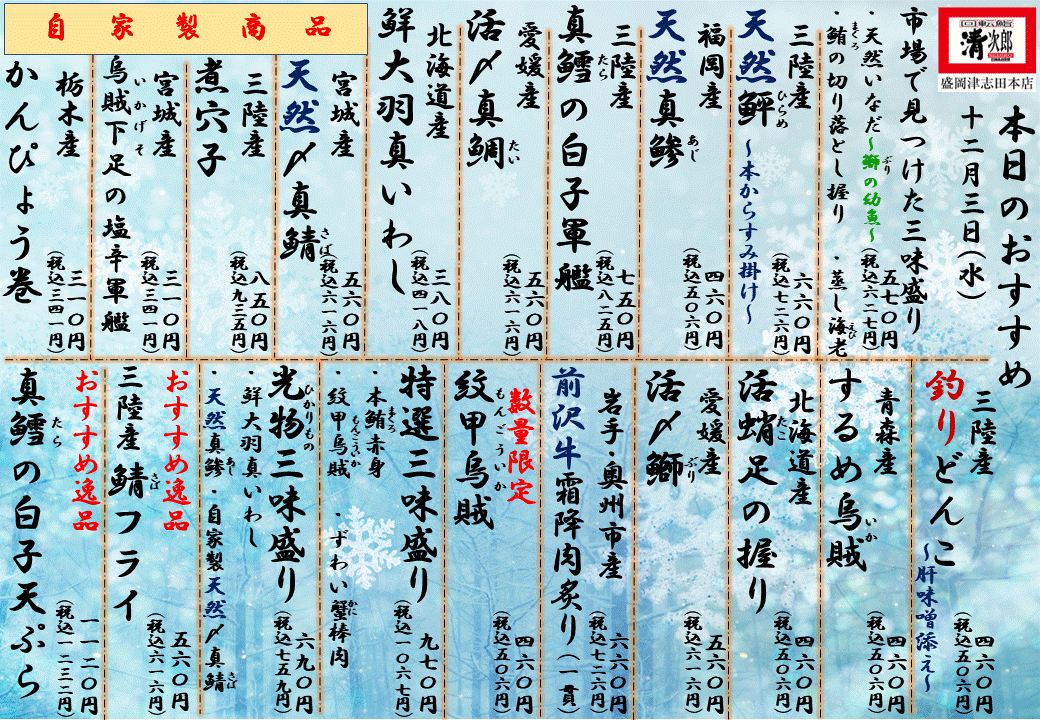 回転鮨
清次郎
盛岡津志田本店
本日のおすすめ
十二月三日(水)
市場で見つけた三味盛り
・天然いなだ～鰤の幼魚～
ぶり
・鮪の切り落とし握り ・蒸し海老
まぐろ
えび
五七〇円
(税込六二七円)
三陸産
天然鮃 ～本からすみ掛け～
ひらめ
六六〇円
(税込七二六円)
福岡産
天然真鯵
あじ
四六〇円
(税込五〇六円)
三陸産
真鱈の白子軍艦
たら
七五〇円
(税込八二五円)
愛媛産
活〆真鯛
たい
五六〇円
(税込六一六円)
北海道産
鮮大羽真いわし
三八〇円
(税込四一八円)
自家製商品
宮城産
天然〆真鯖
さば
五六〇円
(税込六一六円)
三陸産
煮穴子
八五〇円
(税込九三五円)
宮城産
烏賊下足の塩辛軍艦
いかげそ
三一〇円
(税込三四一円)
栃木産
かんぴょう巻
三一〇円
(税込三四一円)
三陸産
釣りどんこ ～肝味噌添え～
四六〇円
(税込五〇六円)
青森産
するめ烏賊
いか
四六〇円
(税込五〇六円)
北海道産
活蛸足の握り
たこ
四六〇円
(税込五〇六円)
愛媛産
活〆鰤
ぶり
五六〇円
(税込六一六円)
岩手・奥州市産
前沢牛霜降肉炙り(一貫)
六六〇円
(税込七二六円)
数量限定
紋甲烏賊
もんごういか
四六〇円
(税込五〇六円)
特選三味盛り
・本鮪赤身
まぐろ
・紋甲烏賊 ・ずわい蟹棒肉
もんごういか
かに
九七〇円
(税込一〇六七円)
光物三味盛り
ひかりもの
・鮮大羽真いわし
・天然真鯵・自家製天然〆真鯖
あじ
さば
六九〇円
(税込七五九円)
おすすめ逸品
三陸産 鯖フライ
さば
五六〇円
(税込六一六円)
おすすめ逸品
真鱈の白子天ぷら
たら
一一二〇円
(税込一二三二円)